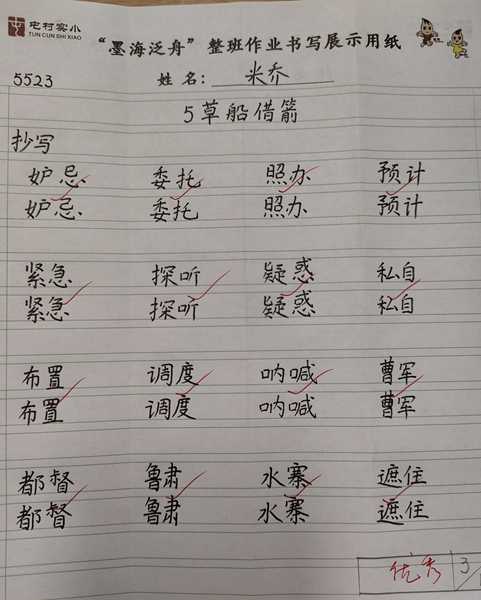 屯村实小
TUN CUN SHI XIAO
“墨海泛舟”整班作业书写展示用纸
5523 姓名：米乔
5草船借箭
抄写
妒忌 委托 照办 预计
妒忌 委托 照办 预计
紧急 探听 疑惑 私自
紧急 探听 疑惑 私自
布置 调度 呐喊 曹军
布置 调度 呐喊 曹军
都督 鲁肃 水寨 遮住
都督 鲁肃 水寨 遮住
优秀 3